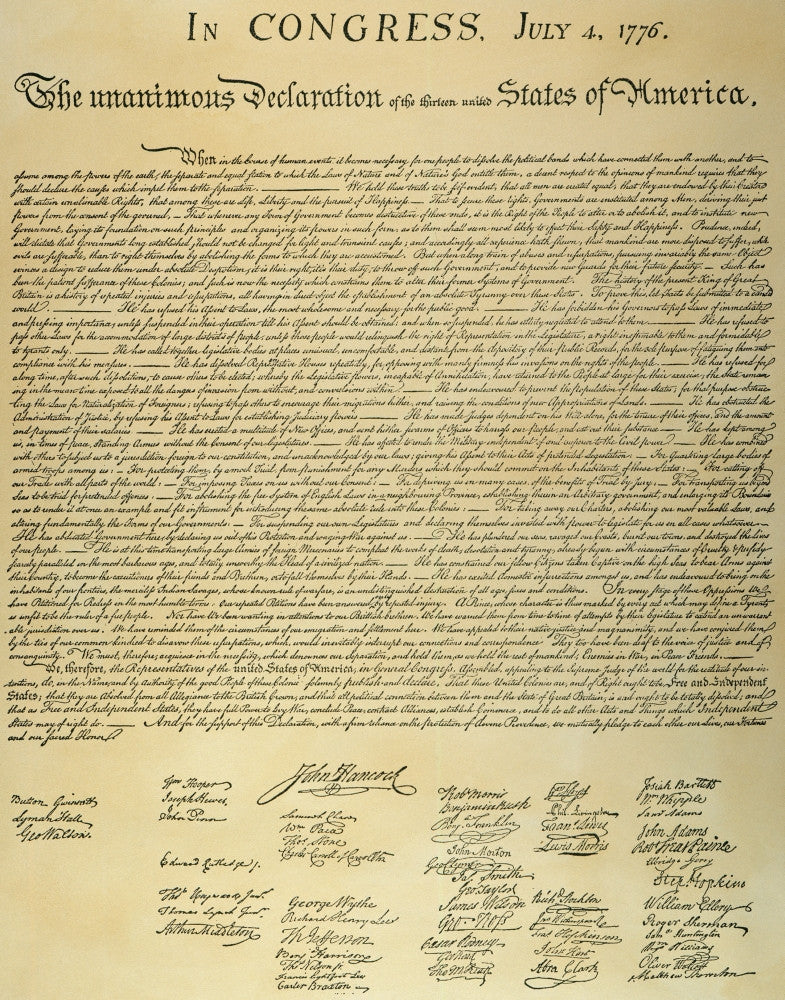 IN CONGRESS, JULY 4, 1776.
The unanimous Declaration of the thirteen united States of America.
When in the Course of human events it becomes necessary for one people to dissolve the political bands which have connected them with another, and to
assume among the powers of the earth, the separate and equal station to which the Laws of Nature and of Nature's God entitle them, a decent respect to the opinions of mankind requires that they
should declare the causes which impel them to the separation. — We hold these truths to be self-evident, that all men are created equal, that they are endowed by their Creator
with certain unalienable Rights, that among these are Life, Liberty and the pursuit of Happiness. — That to secure these rights, Governments are instituted among Men, deriving their just
powers from the consent of the governed, — That whenever any Form of Government becomes destructive of these ends, it is the Right of the People to alter or to abolish it, and to institute new
Government, laying its foundation on such principles and organizing its powers in such form, as to them shall seem most likely to effect their Safety and Happiness. Prudence, indeed,
will dictate that Governments long established should not be changed for light and transient causes; and accordingly all experience hath shewn, that mankind are more disposed to suffer, while
evils are sufferable, than to right themselves by abolishing the forms to which they are accustomed. But when a long train of abuses and usurpations, pursuing invariably the same Object
evinces a design to reduce them under absolute Despotism, it is their right, it is their duty, to throw off such Government, and to provide new Guards for their future security. — Such has
been the patient sufferance of these Colonies; and such is now the necessity which constrains them to alter their former Systems of Government. The history of the present King of Great
Britain is a history of repeated injuries and usurpations, all having in direct object the establishment of an absolute Tyranny over these States. To prove this, let Facts be submitted to a candid
world. — He has refused his Assent to Laws, the most wholesome and necessary for the public good. — He has forbidden his Governors to pass Laws of immediate
and pressing importance, unless suspended in their operation till his Assent should be obtained; and when so suspended, he has utterly neglected to attend to them. — He has refused to
pass other Laws for the accommodation of large districts of people, unless those people would relinquish the right of Representation in the Legislature, a right inestimable to them and formidable
to tyrants only. — He has called together legislative bodies at places unusual, uncomfortable, and distant from the depository of their public Records, for the sole purpose of fatiguing them into
compliance with his measures. — He has dissolved Representative Houses repeatedly, for opposing with manly firmness his invasions on the rights of the people. — He has refused for
a long time, after such dissolutions, to cause others to be elected; whereby the Legislative powers, incapable of Annihilation, have returned to the People at large for their exercise; the State remain
ing in the mean time exposed to all the dangers of invasion from without, and convulsions within. — He has endeavoured to prevent the population of these States; for that purpose obstruc
ting the Laws for Naturalization of Foreigners; refusing to pass others to encourage their migrations hither, and raising the conditions of new Appropriations of Lands. — He has obstructed the
Administration of Justice, by refusing his Assent to Laws for establishing Judiciary powers. — He has made Judges dependent on his Will alone, for the tenure of their offices, and the amount
and payment of their salaries. — He has erected a multitude of New Offices, and sent hither swarms of Officers to harrass our people, and eat out their substance. — He has kept among
us, in times of peace, Standing Armies without the Consent of our legislatures. — He has affected to render the Military independent of and superior to the Civil power. — He has combined
with others to subject us to a jurisdiction foreign to our constitution, and unacknowledged by our laws; giving his Assent to their Acts of pretended Legislation: — For Quartering large bodies of
armed troops among us: — For protecting them, by a mock Trial, from punishment for any Murders which they should commit on the Inhabitants of these States: — For cutting off
our Trade with all parts of the world: — For imposing Taxes on us without our Consent: — For depriving us in many cases, of the benefits of Trial by Jury: — For transporting us beyond
Seas to be tried for pretended offences: — For abolishing the free System of English Laws in a neighbouring Province, establishing therein an Arbitrary government, and enlarging its Boundaries
so as to render it at once an example and fit instrument for introducing the same absolute rule into these Colonies: — For taking away our Charters, abolishing our most valuable Laws, and
altering fundamentally the Forms of our Governments: — For suspending our own Legislatures and declaring themselves invested with power to legislate for us in all cases whatsoever. —
He has abdicated Government here, by declaring us out of his Protection and waging War against us: — He has plundered our seas, ravaged our Coasts, burnt our towns, and destroyed the Lives
of our people. — He is at this time transporting large Armies of foreign Mercenaries to compleat the works of death, desolation and tyranny, already begun with circumstances of Cruelty & perfidy
scarcely paralleled in the most barbarous ages, and totally unworthy the Head of a civilized nation. — He has constrained our fellow Citizens taken Captive on the high Seas to bear Arms against
their Country, to become the executioners of their friends and Brethren, or to fall themselves by their Hands. — He has excited domestic insurrections amongst us, and has endeavoured to bring on the
inhabitants of our frontiers, the merciless Indian Savages, whose known rule of warfare, is an undistinguished destruction of all ages, sexes and conditions. In every stage of these Oppressions We
have Petitioned for Redress in the most humble terms: Our repeated Petitions have been answered only by repeated injury. A Prince, whose character is thus marked by every act which may define a Tyrant,
is unfit to be the ruler of a free people. Nor have We been wanting in attentions to our British brethren. We have warned them from time to time of attempts by their legislature to extend an unwarrant
able jurisdiction over us. We have reminded them of the circumstances of our emigration and settlement here. We have appealed to their native justice and magnanimity, and we have conjured them
by the ties of our common kindred to disavow these usurpations, which, would inevitably interrupt our connections and correspondence. They too have been deaf to the voice of justice and of
consanguinity. We must, therefore, acquiesce in the necessity, which denounces our Separation, and hold them, as we hold the rest of mankind, Enemies in War, in Peace Friends. —
We, therefore, the Representatives of the united States of America, in General Congress, Assembled, appealing to the Supreme Judge of the world for the rectitude of our in-
tentions, do, in the Name, and by Authority of the good People of these Colonies, solemnly publish and declare, That these United Colonies are, and of Right ought to be Free and Independent
States; that they are Absolved from all Allegiance to the British Crown, and that all political connection between them and the State of Great Britain, is and ought to be totally dissolved; and
that as Free and Independent States, they have full Power to levy War, conclude Peace, contract Alliances, establish Commerce, and to do all other Acts and Things which Independent
States may of right do. — And for the support of this Declaration, with a firm reliance on the protection of divine Providence, we mutually pledge to each other our Lives, our Fortunes
and our sacred Honor.
John Hancock
Button Gwinnett
Lyman Hall
Geo Walton.
Wm Hooper
Joseph Hewes,
John Penn
Edward Rutledge /.
Thos Heyward Junr.
Thomas Lynch Junr.
Arthur Middleton
Samuel Chase
Wm Paca
Thos Stone
Charles Carroll of Carrollton
George Wythe
Richard Henry Lee
Th Jefferson
Benj Harrison
Thos Nelson jr.
Francis Lightfoot Lee
Carter Braxton
Robt Morris
Benjamin Rush
Benj. Franklin
John Morton
Geo Clymer
Jas. Smith
Geo. Taylor
James Wilson
Geo. Ross
Caesar Rodney
Geo Read
Tho M:Kean
Wm Floyd
Phil. Livingston
Frans. Lewis
Lewis Morris
Richd. Stockton
Jno Witherspoon
Fras. Hopkinson
John Hart
Abra Clark
Josiah Bartlett
Wm. Whipple
Saml Adams
John Adams
Robt Treat Paine
Elbridge Gerry
Step. Hopkins
William Ellery
Roger Sherman
Saml Huntington
Wm. Williams
Oliver Wolcott
Matthew Thornton